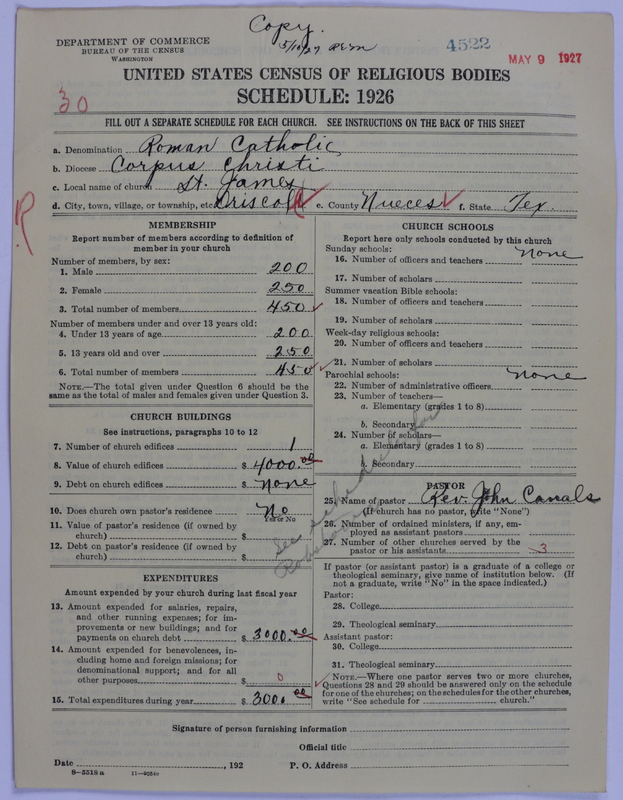 Copy.
DEPARTMENT OF COMMERCE
BUREAU OF THE CENSUS
WASHINGTON
5/10/27
4522
MAY 9 1927
UNITED STATES CENSUS OF RELIGIOUS BODIES
30
SCHEDULE: 1926
FILL OUT A SEPARATE SCHEDULE FOR EACH CHURCH. SEE INSTRUCTIONS ON THE BACK OF THIS SHEET
a. Denomination Roman Catholic
b. Diocese Corpus Christi
c. Local name of church St. James
d. City, town, village, or township, etc. Driscoll e. County Nueces f. State Tex.
R
MEMBERSHIP
Report number of members according to definition of
member in your church
Number of members, by sex:
1. Male 200
2. Female 250
3. Total number of members 450
Number of members under and over 13 years old:
4. Under 13 years of age 200
5. 13 years old and over 250
6. Total number of members 450
NOTE.—The total given under Question 6 should be the
same as the total of males and females given under Question 3.
CHURCH BUILDINGS
See instructions, paragraphs 10 to 12
7. Number of church edifices 1
8. Value of church edifices $ 4000.00
9. Debt on church edifices $ none
10. Does church own pastor's residence No
Yes or No
11. Value of pastor's residence (if owned by
church) $
12. Debt on pastor's residence (if owned by
church) $
EXPENDITURES
Amount expended by your church during last fiscal year
13. Amount expended for salaries, repairs,
and other running expenses; for im-
provements or new buildings; and for
payments on church debt $ 3000.00
14. Amount expended for benevolences, in-
cluding home and foreign missions; for
denominational support; and for all
other purposes $ 0
15. Total expenditures during year $ 3000.00
CHURCH SCHOOLS
Report here only schools conducted by this church
Sunday schools:
16. Number of officers and teachers none
17. Number of scholars
Summer vacation Bible schools:
18. Number of officers and teachers
19. Number of scholars
Week-day religious schools:
20. Number of officers and teachers
21. Number of scholars
Parochial schools: none
22. Number of administrative officers
23. Number of teachers—
a. Elementary (grades 1 to 8)
b. Secondary
24. Number of scholars—
a. Elementary (grades 1 to 8)
b. Secondary
See schedule for
Robstown
PASTOR
25. Name of pastor Rev. John Canals
(If church has no pastor, write "None")
26. Number of ordained ministers, if any, em-
ployed as assistant pastors
27. Number of other churches served by the
pastor or his assistants 3
If pastor (or assistant pastor) is a graduate of a college or
theological seminary, give name of institution below. (If
not a graduate, write "No" in the space indicated.)
Pastor:
28. College
29. Theological seminary
Assistant pastor:
30. College
31. Theological seminary
NOTE.—Where one pastor serves two or more churches,
Questions 28 and 29 should be answered only on the schedule
for one of the churches; on the schedules for the other churches,
write "See schedule for church."
Signature of person furnishing information
Official title
Date , 192 P. O. Address
8-5518a 11-9054